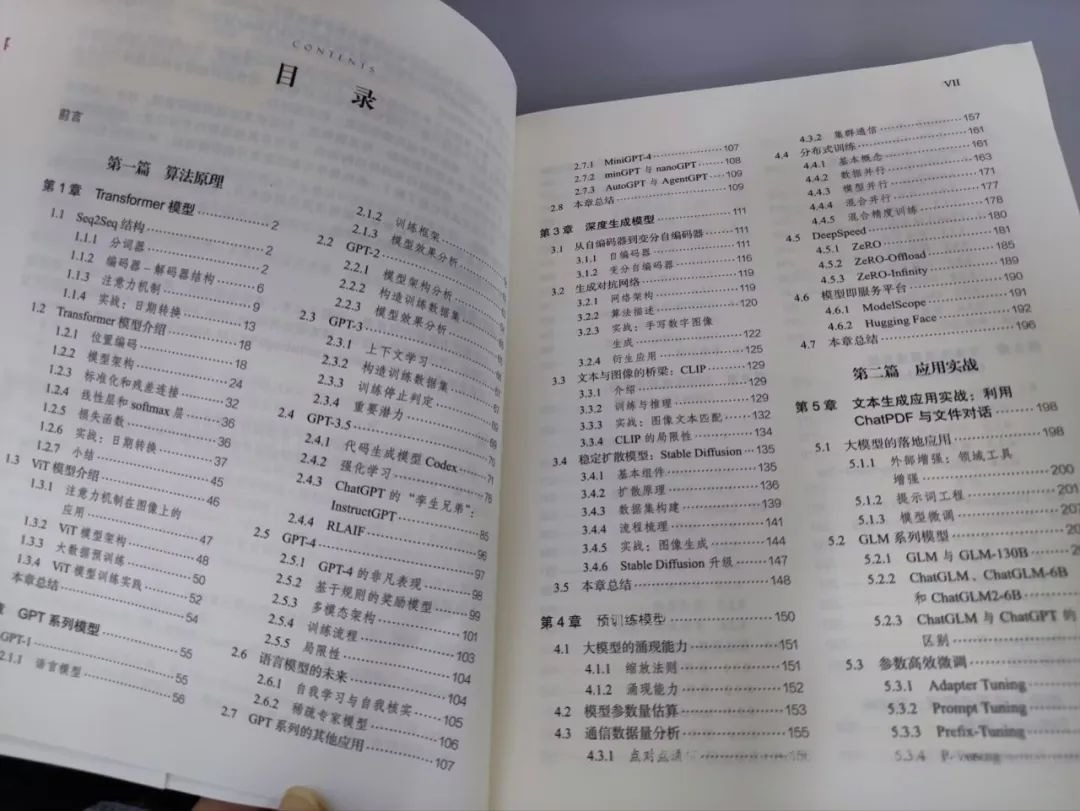 CONTENTS
目 录
前言
第一篇 算法原理
第1章 Transformer 模型 2
1.1 Seq2Seq 结构 2
1.1.1 分词器 2
1.1.2 编码器-解码器结构 6
1.1.3 注意力机制 9
1.1.4 实战:日期转换 13
1.2 Transformer 模型介绍 18
1.2.1 位置编码 18
1.2.2 模型架构 24
1.2.3 标准化和残差连接 32
1.2.4 线性层和 softmax 层 36
1.2.5 损失函数 36
1.2.6 实战:日期转换 37
1.2.7 小结 45
1.3 ViT 模型介绍 46
1.3.1 注意力机制在图像上的
应用 47
1.3.2 ViT 模型架构 48
1.3.3 大数据预训练 50
1.3.4 ViT 模型训练实践 52
本章总结 54
章 GPT 系列模型 55
GPT-1 55
2.1.1 语言模型 56
2.1.2 训练框架
2.1.3 模型效果分析
2.2 GPT-2
2.2.1 模型架构分析
2.2.2 构造训练数据集
2.2.3 模型效果分析
2.3 GPT-3
2.3.1 上下文学习
2.3.2 构造训练数据集
2.3.3 训练停止判定
2.3.4 重要潜力
2.4 GPT-3.5
2.4.1 代码生成模型 Codex
2.4.2 强化学习
2.4.3 ChatGPT 的“孪生兄弟”:
InstructGPT 85
2.4.4 RLAIF 96
2.5 GPT-4 97
2.5.1 GPT-4 的非凡表现 98
2.5.2 基于规则的奖励模型 99
2.5.3 多模态架构 101
2.5.4 训练流程 103
2.5.5 局限性 104
2.6 语言模型的未来 104
2.6.1 自我学习与自我核实 105
2.6.2 稀疏专家模型 106
2.7 GPT 系列的其他应用 107
VII
2.7.1 MiniGPT-4 107
2.7.2 miniGPT 与 nanoGPT 108
2.7.3 AutoGPT 与 AgentGPT 109
2.8 本章总结 109
第3章 深度生成模型 111
3.1 从自编码器到变分自编码器 111
3.1.1 自编码器 111
3.1.2 变分自编码器 116
3.2 生成对抗网络 119
3.2.1 网络架构 119
3.2.2 算法描述 120
3.2.3 实战:手写数字图像
生成 122
3.2.4 衍生应用 125
3.3 文本与图像的桥梁:CLIP 129
3.3.1 介绍 129
3.3.2 训练与推理 129
3.3.3 实战:图像文本匹配 132
3.3.4 CLIP 的局限性 134
3.4 稳定扩散模型:Stable Diffusion 135
3.4.1 基本组件 135
3.4.2 扩散原理 136
3.4.3 数据集构建 139
3.4.4 流程梳理 141
3.4.5 实战:图像生成 144
3.4.6 Stable Diffusion 升级 147
3.5 本章总结 148
第4章 预训练模型 150
4.1 大模型的涌现能力 151
4.1.1 缩放法则 151
4.1.2 涌现能力 152
4.2 模型参数量估算 153
4.3 通信数据量分析 155
4.3.1 点对点通信
4.3.2 集群通信 157
4.4 分布式训练 161
4.4.1 基本概念 161
4.4.2 数据并行 163
4.4.3 模型并行 171
4.4.4 混合并行 177
4.4.5 混合精度训练 178
4.5 DeepSpeed 180
4.5.1 ZeRO 181
4.5.2 ZeRO-Offload 185
4.5.3 ZeRO-Infinity 189
4.6 模型即服务平台 190
4.6.1 ModelScope 191
4.6.2 Hugging Face 192
4.7 本章总结 196
第二篇 应用实战
第5章 文本生成应用实战:利用
ChatPDF 与文件对话 198
5.1 大模型的落地应用 198
5.1.1 外部增强:领域工具
增强 200
5.1.2 提示词工程 201
5.1.3 模型微调
5.2 GLM 系列模型
5.2.1 GLM 与 GLM-130B
5.2.2 ChatGLM、ChatGLM-6B
和 ChatGLM2-6B
5.2.3 ChatGLM 与 ChatGPT 的
区别
5.3 参数高效微调
5.3.1 Adapter Tuning
5.3.2 Prompt Tuning
5.3.3 Prefix-Tuning
5.3.4